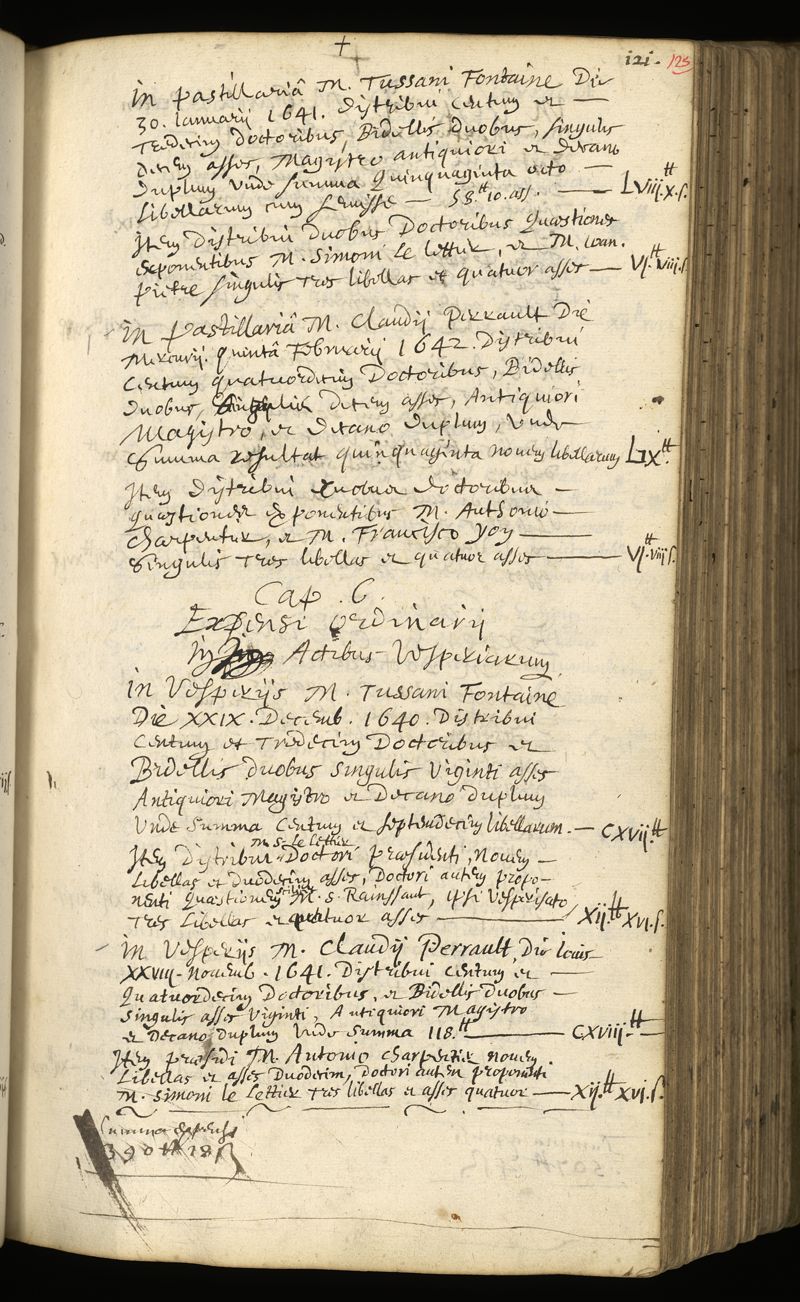 121. 123
In pastillariâ M. Tussani Fontaine Die
30. Ianuarij 1641. distribui centum et —
Tredecim doctoribus, Bidellis duobus, singulis
decem asses, Magistro antiquiori et decano
duplum unde summa Quinquaginta octo —
Libellarum cum semisse — 58.tt 10. ass. — Lviij.tt x.s.
Item distribui duobus Doctoribus Quæstiones
exponentibus M. Simoni Le Lettier, et M. Ioan.
Pietre singulis tres libellas et quatuor asses — VI.tt viij.s.
In pastillariâ M. Claudij Perrault Die
Mercurij. quintâ Februarij 1642. Distribui
Centum quatuordecim Doctoribus, Bidellis
duobus, decem asses, Antiquiori
Magistro, et decano duplum, unde
Summa resultat quinquaginta novem libellarum Lix.tt
Item distribui duobus doctoribus —
quæstiones exponentibus M. Anthonio —
Charpentier, et M. Francisco yon —
Singulis tres libellas et quatuor asses — VI.tt viij s.
Cap. 6.
Expensi ordinarij
In Actibus Vesperiarum
In Vesperijs M. Tussani Fontaine
Die XXIX. Decemb. 1640. Distribui
Centum et Tredecim Doctoribus et
Bidellis duobus singulis Viginti asses
Antiquiori Magistro et Decano duplum
Unde summa Centum et septendecim libellarum. — CXVij.tt
M. S. Le Lettier
Item distribui Doctori præsidenti, Novem —
Libellas et duodecim asses, Doctori autem propo-
nenti Quæstionem M. S. Rainssant, ipsi Vesperisato
Tres Libellas et quatuor asses — Xij.tt XVI.s.
In Vesperijs M. Claudij Perrault, Die Iouis
XXVIII. Novemb. 1641. Distribui Centum et —
Quatuordecim Doctoribus, et Bidellis duobus —
singulis asses Viginti, Antiquiori Magistro
et Decano duplum Unde Summa 118.tt — CXViij.tt
Item præsidi M. Antonio Charpentier novem
Libellas et asses Duodecim, Doctori autem proponenti
M. Simoni le Lettier tres libellas et asses quatuor — Xij.tt XVI.s.
Summa expensi
390tt 18s